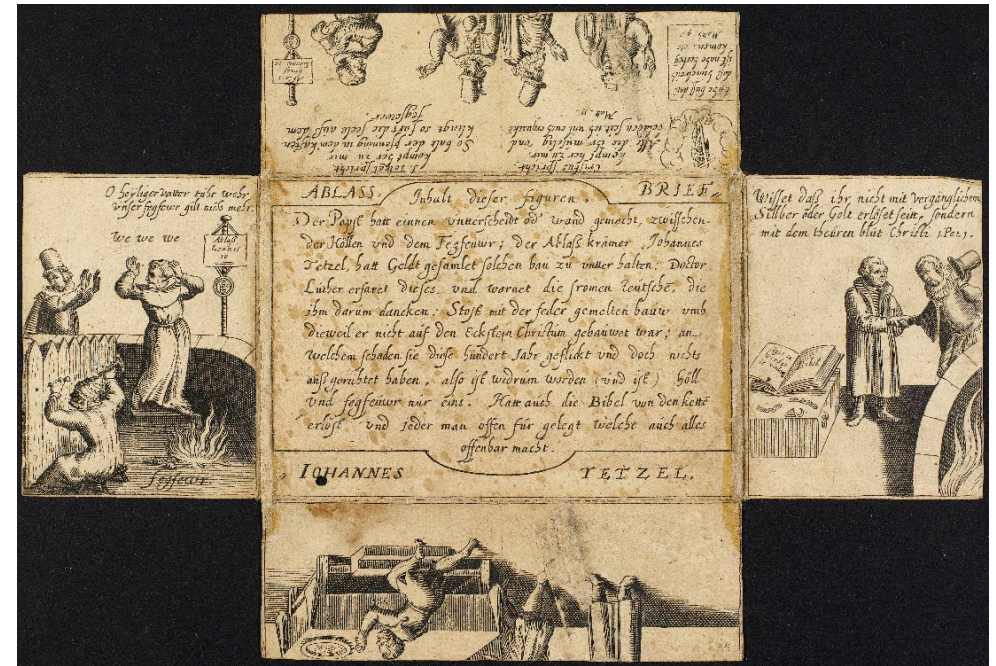 Cristus spricht
kompt her zu mir
Alle die Ihr müselig und
beladen seit ich wil euch erquicke
Mat. 11.
I Tetzel spricht
kompt her zu mir
So balt der pfenning in dem kasten
klingt so fart die seele auß dem
fegfewer.
O heyliger vatter tuht wehr
vnser fegfewr gilt nichs mehr.
We we we
Ablaß
10
fegfewr
ABLASS. BRIEF.
Inhult dieser figuren.
Der Papst hatt einnen vntterscheidt od' wand gemecht, zwisschen
der Hollen vnd dem Fegfeuwr; der Ablaß kramer Johannes
Tetzel, hatt Geldt gesamlet solchen bau zu vntter halten. Doctor
Luther erfaret dieses, vnd warnet die fromen Teutsche, die
ihm darum dancken; Stost mit der feder gemelten bauw vmb
dieweil er nicht auf den Eckstein Christum gebauwet war; an
Welchem schaden sie diese hundert Jahr geflickt vnd doch nichts
auß gerichtet haben, also ist wedrum worden (vnd ist) höll
vnd fegfeuwr nur eins. Hatt auch die Bibel von den kette
erlöst vnd Jeder man offen für gelegt welche auch alles
offenbar macht.
IOHANNES TETZEL.
Wisset daß ihr nicht mit vergänglichem
Sillber oder Golt erlöset seitt, sondern
mit dem theüren blüt Christi. 1 Pet. 1.
Bibel